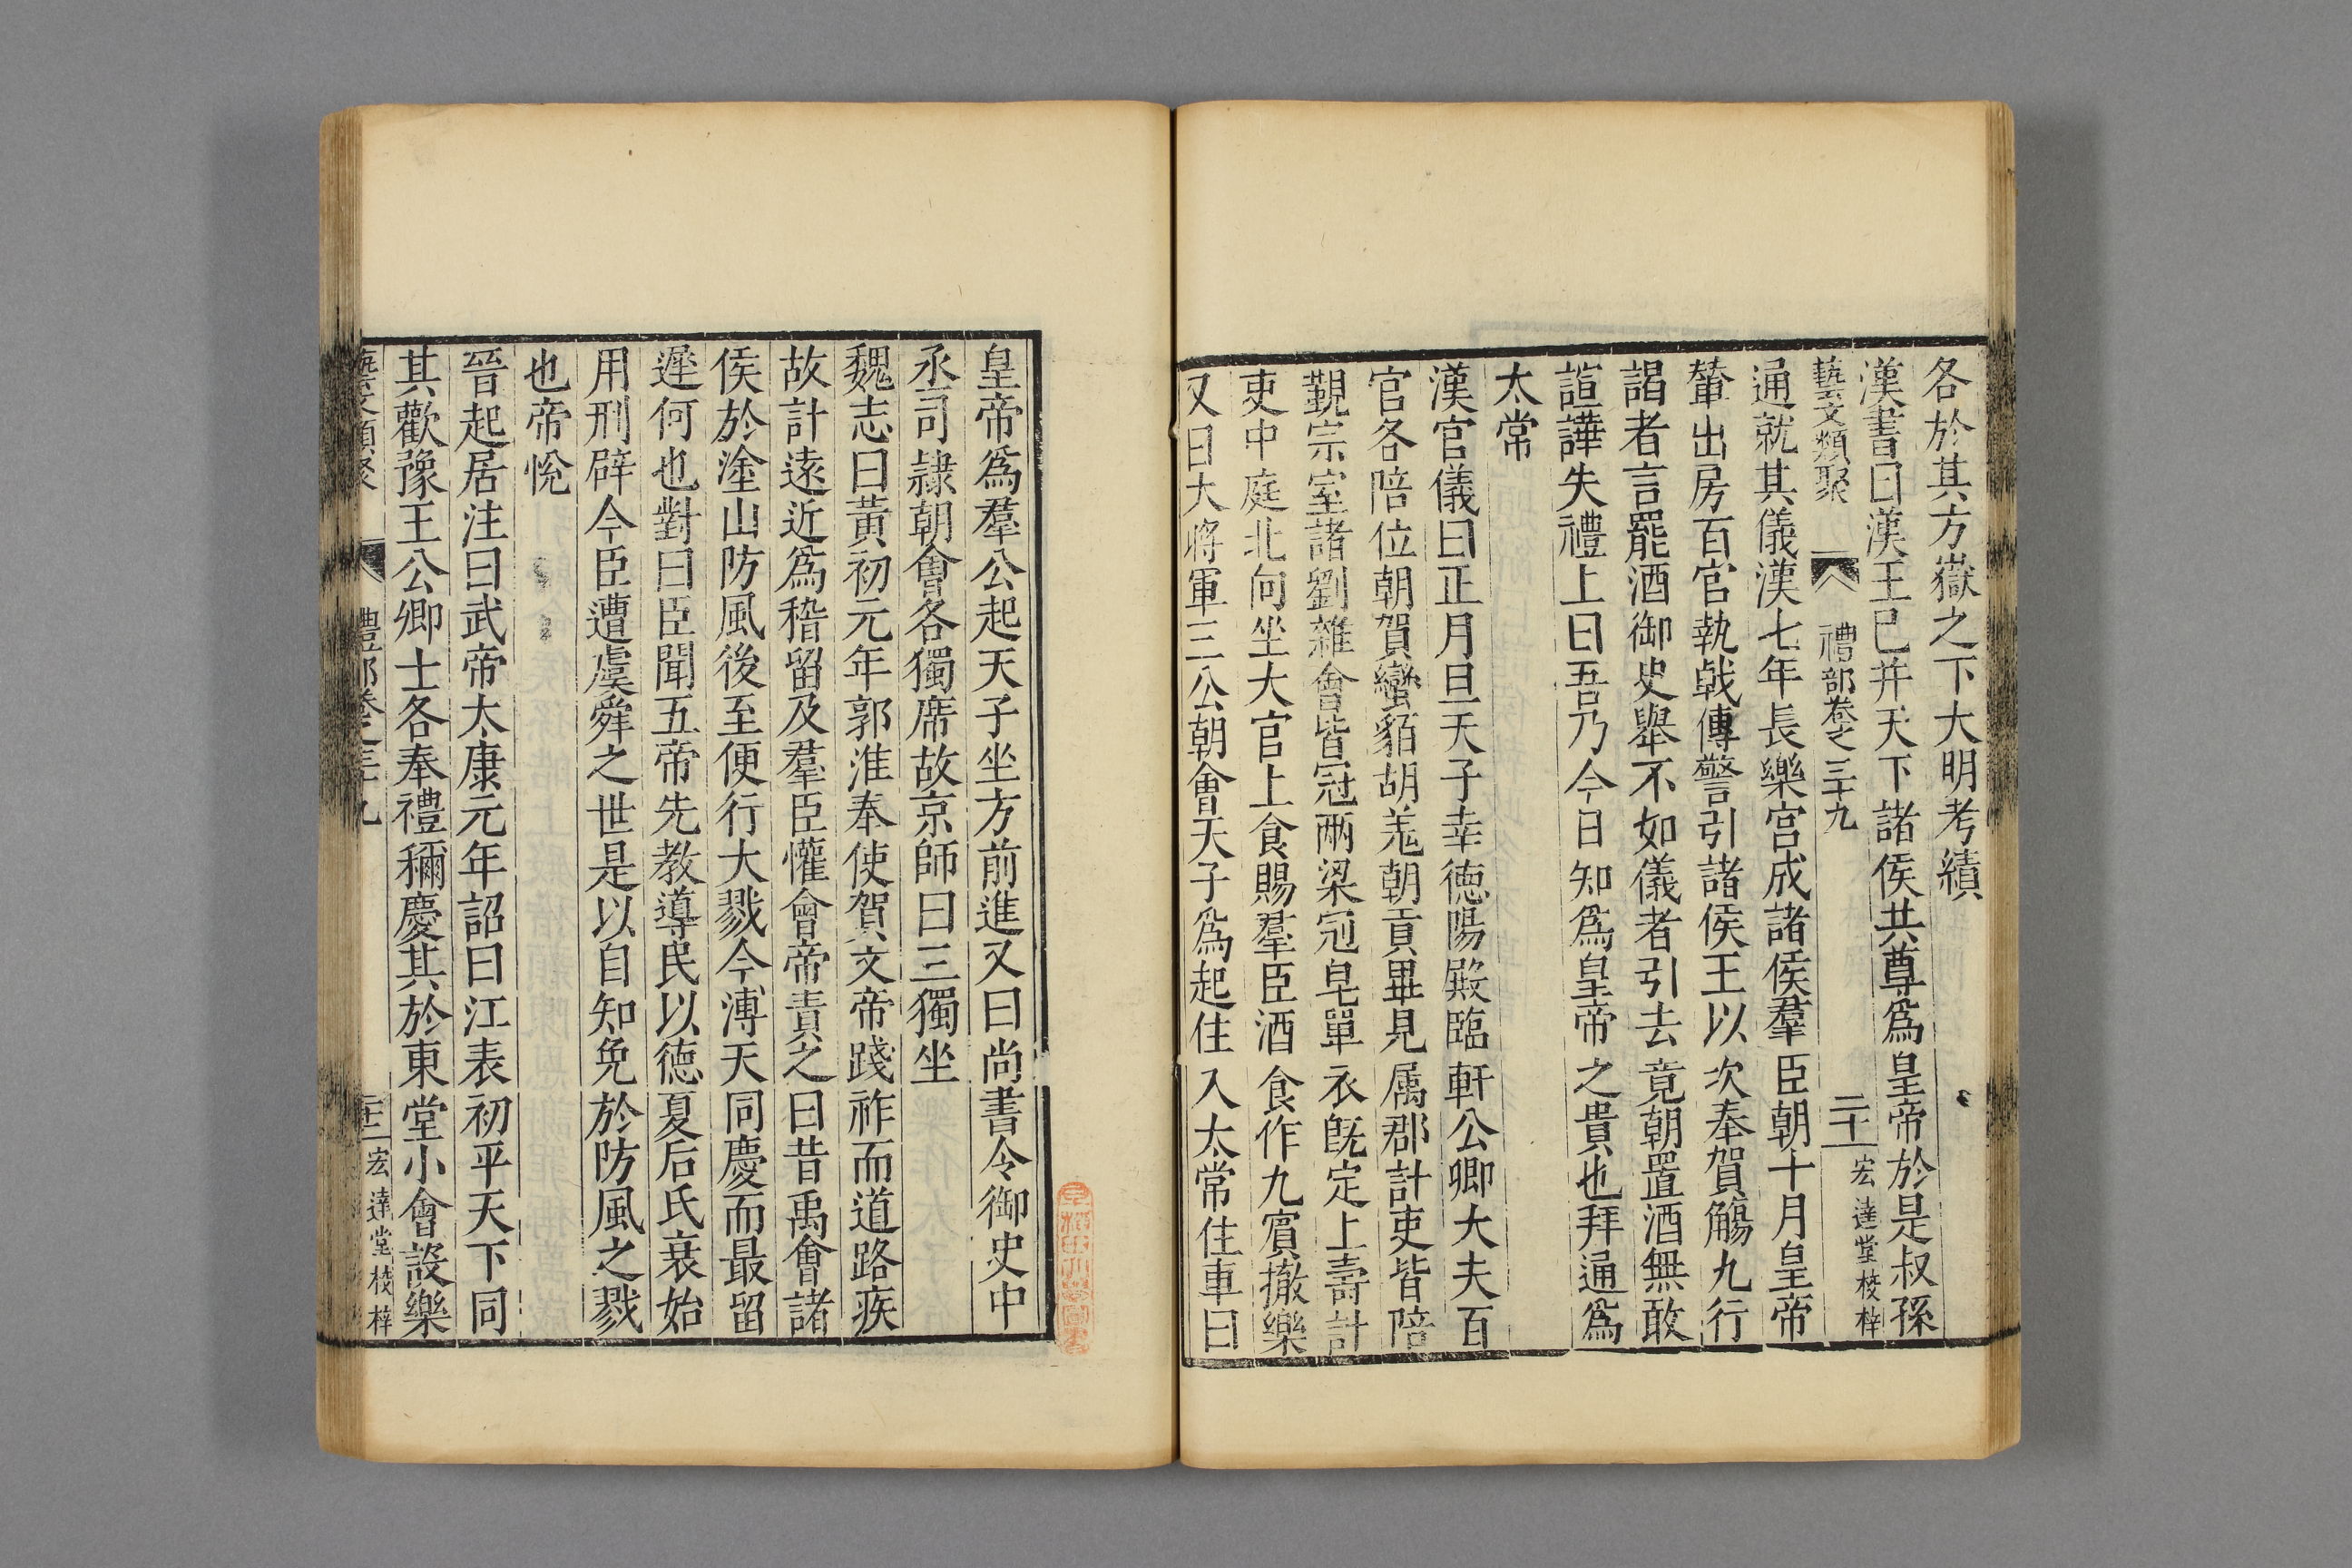 各於其方嶽之下大明考績
漢書曰漢王已并天下諸侯共尊爲皇帝於是叔孫
藝文類聚 禮部卷之三十九 二十一 宏達堂校梓
通就其儀漢七年長樂宮成諸侯羣臣朝十月皇帝
輦出房百官執戟傳警引諸侯王以次奉賀觴九行
謁者言罷酒御史舉不如儀者引去竟朝置酒無敢
諠譁失禮上曰吾乃今日知爲皇帝之貴也拜通爲
太常
漢官儀曰正月旦天子幸德陽殿臨軒公卿大夫百
官各陪位朝賀蠻貊胡羌朝貢畢見属郡計吏皆陪
覲宗室諸劉雜會皆冠兩梁冠皂單衣旣定上壽計
吏中庭北向坐大官上食賜羣臣酒食作九賓撤樂
又曰大將軍三公朝會天子爲起住入太常住車曰
皇帝爲羣公起天子坐方前進又曰尚書令御史中
丞司隷朝會各獨席故京師曰三獨坐
魏志曰黃初元年郭淮奉使賀文帝踐祚而道路疾
故計遠近爲稽留及羣臣懽會帝責之曰昔禹會諸
侯於塗山防風後至便行大戮今溥天同慶而最留
遲何也對曰臣聞五帝先教導民以德夏后氏衰始
用刑辟今臣遭虞舜之世是以自知免於防風之戮
也帝悅
晉起居注曰武帝太康元年詔曰江表初平天下同
其歡豫王公卿士各奉禮稱慶其於東堂小會設樂
藝文類聚 禮部卷之三十九 宏達堂校梓